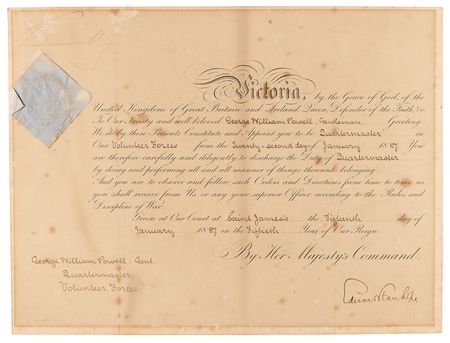 Victoria, by the Grace of God, of the
United Kingdom of Great Britain and Ireland, Queen, Defender of the Faith, &c.
To Our Trusty and well beloved George William Powell, Gentleman, Greeting
We do by these Presents Constitute and Appoint you to be Quartermaster in
Our Volunteer Forces from the Twenty-second day of January 1887. You
are therefore carefully and diligently to discharge the Duty of Quartermaster
by doing and performing all and all manner of things thereunto belonging.
And you are to observe and follow such Orders and Directions from time to time as
you shall receive from Us or any your superior Officer, according to the Rules and
Discipline of War.
Given at Our Court at Saint James's the Fifteenth day of
January 1887 in the Fiftieth Year of Our Reign.
By Her Majesty's Command.
George William Powell, Gent
Quartermaster,
Volunteer Forces